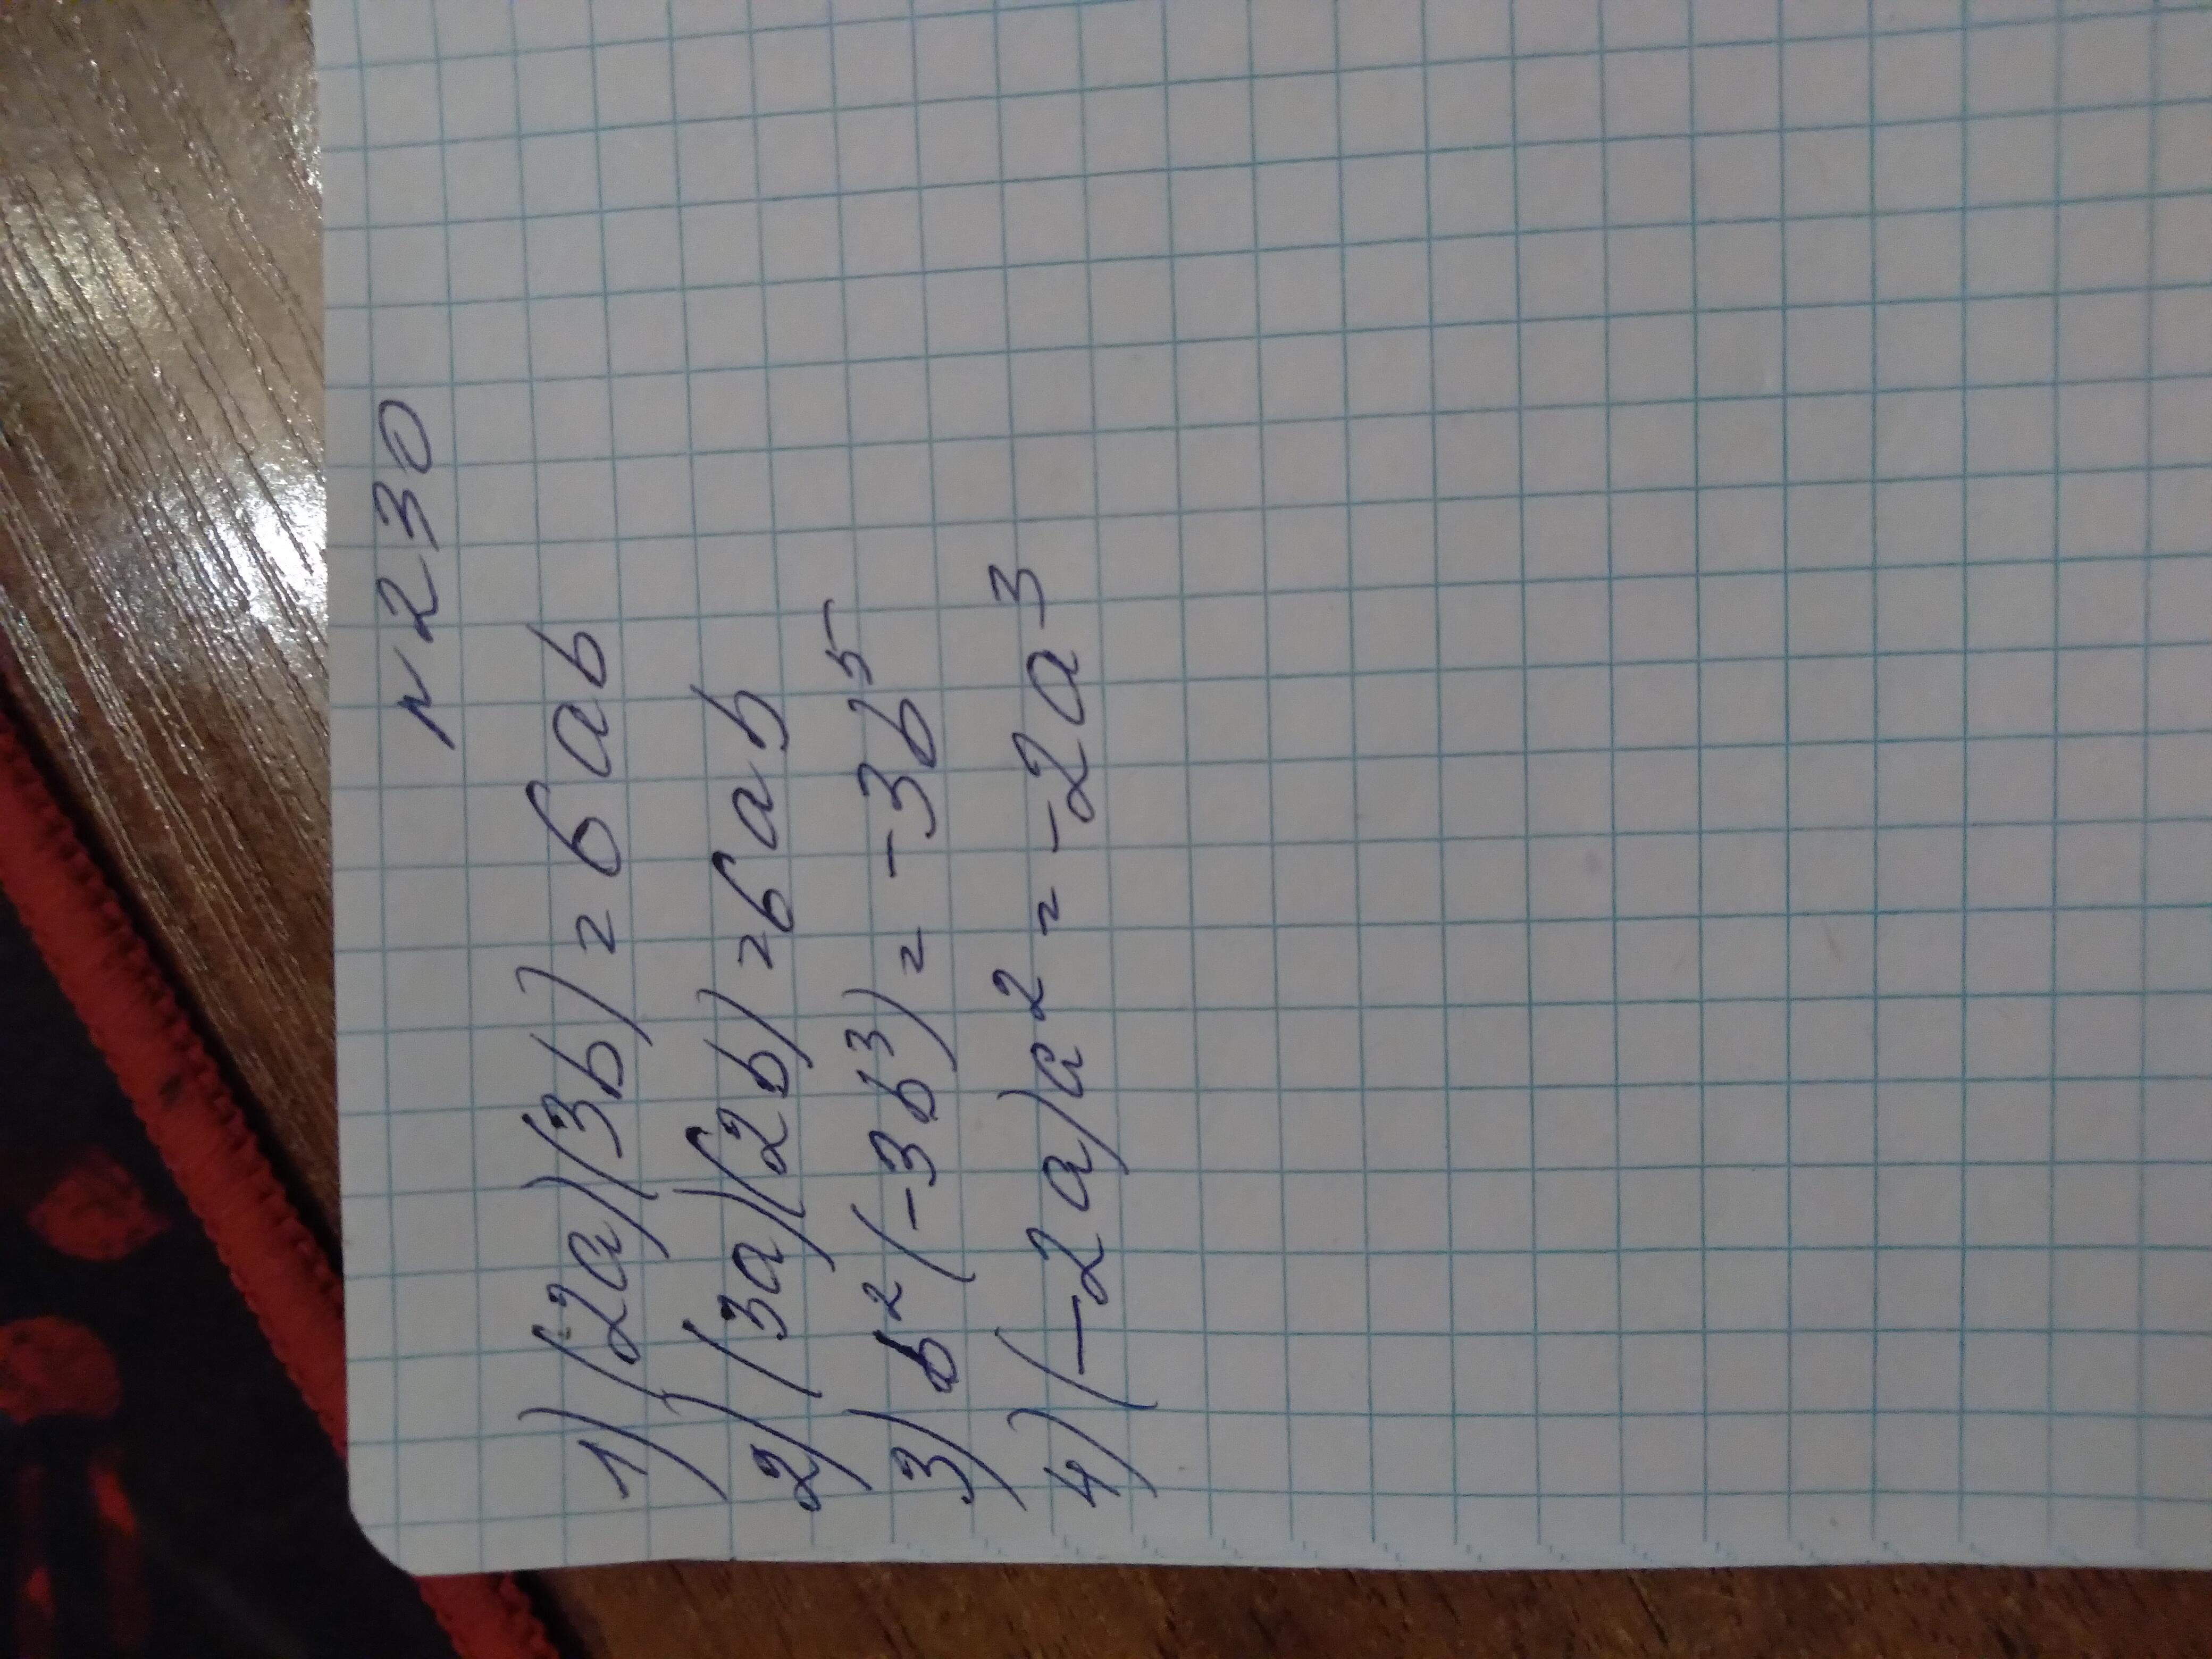 N 230
1) (2a)(3b) = 6ab
2) (3a)(2b) = 6ab
3) b²(-3b³) = -3b⁵
4) (-2a)a² = -2a³